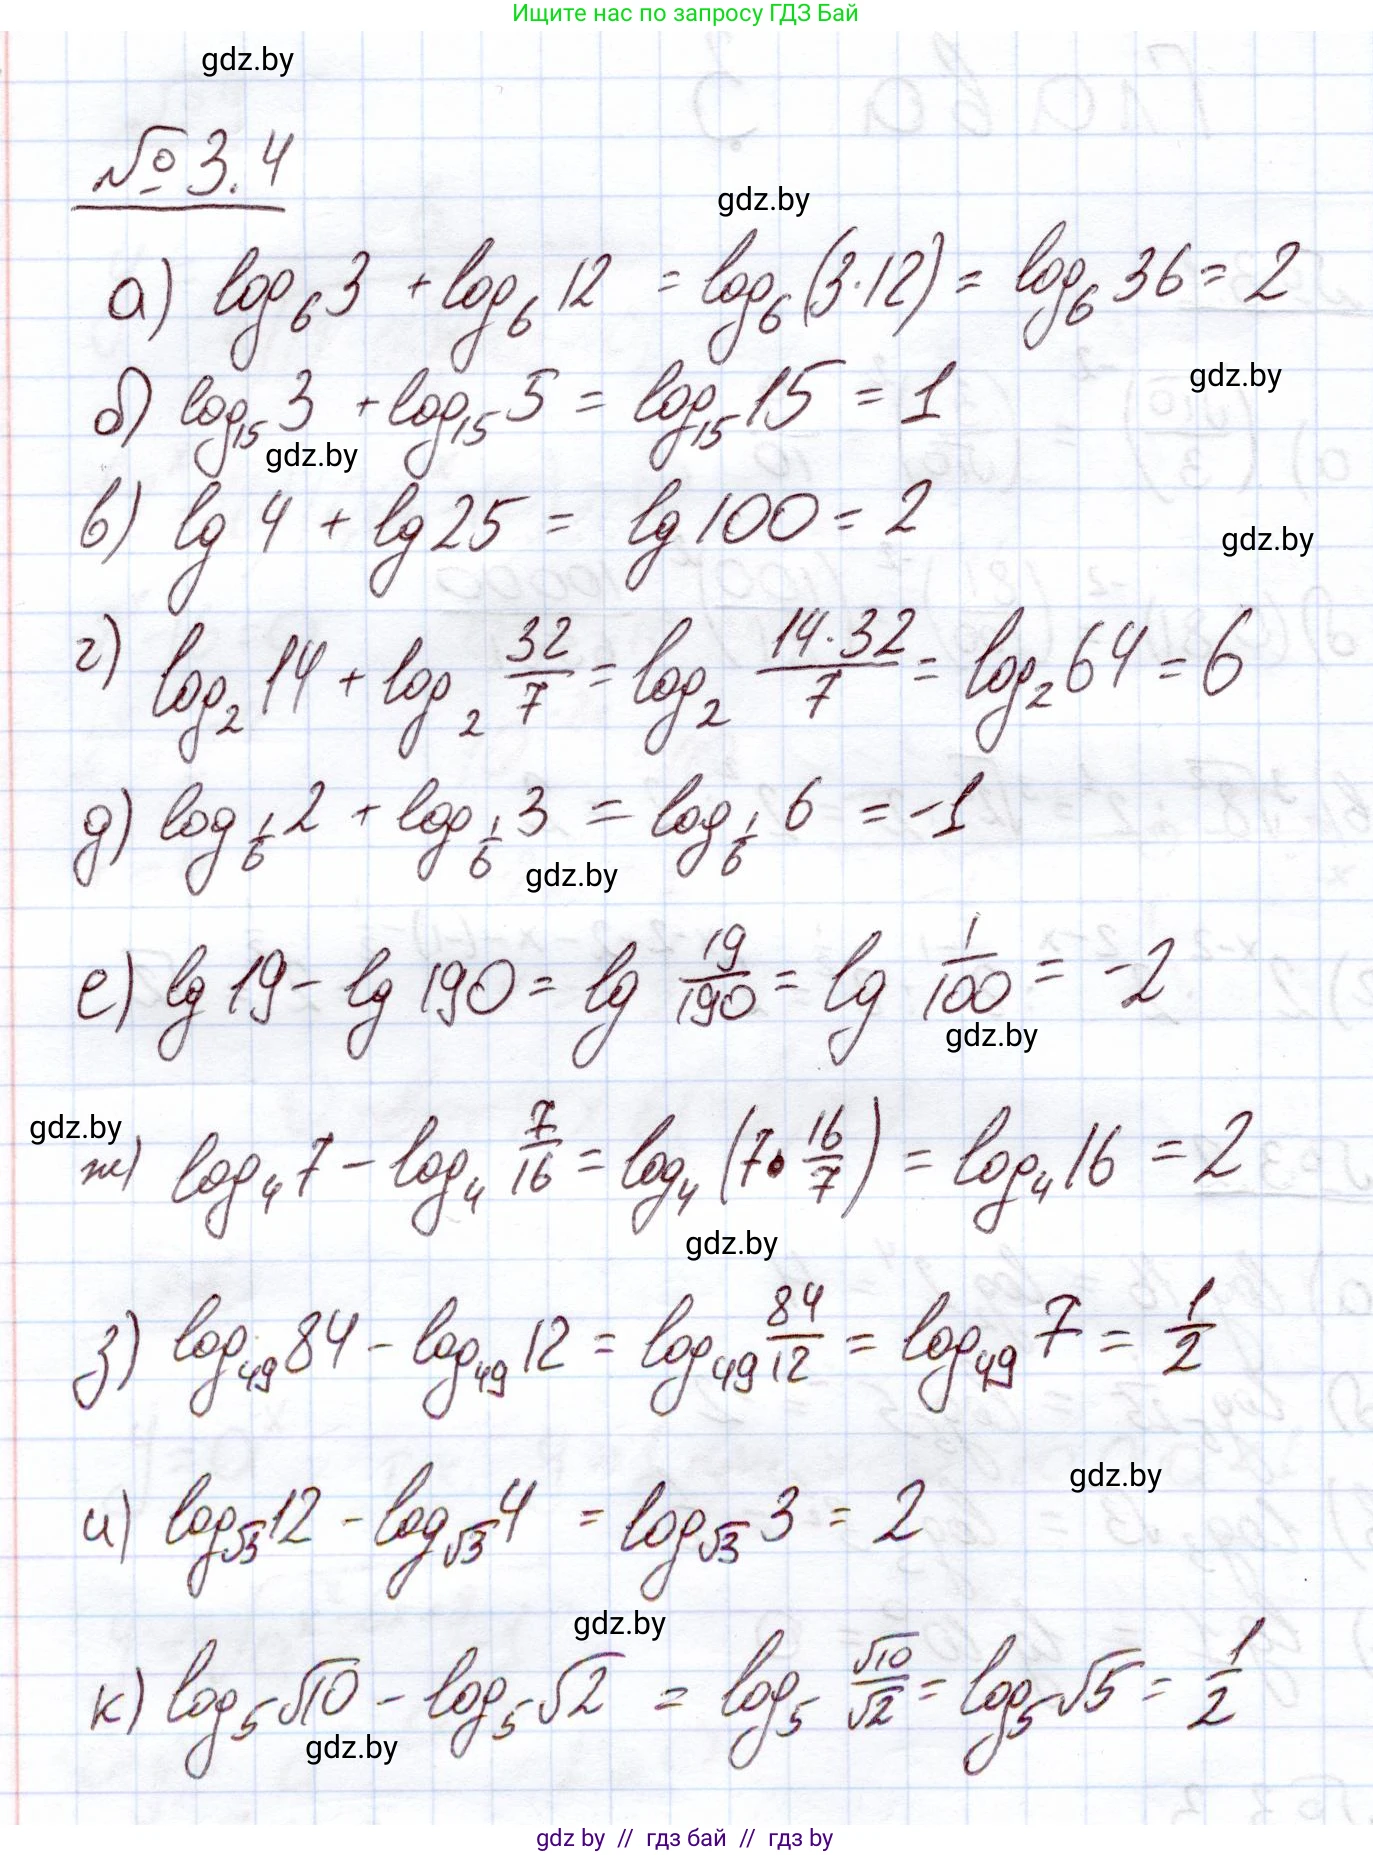 Ищите нас по запросу ГДЗ Бай
gdz.by
№ 3.4
gdz.by
а) log₆ 3 + log₆ 12 = log₆ (3·12) = log₆ 36 = 2
gdz.by
б) log₁₅ 3 + log₁₅ 5 = log₁₅ 15 = 1
gdz.by
в) lg 4 + lg 25 = lg 100 = 2
gdz.by
г) log₂ 14 + log₂ 32/7 = log₂ 14·32/7 = log₂ 64 = 6
д) log_1/6 2 + log_1/6 3 = log_1/6 6 = -1
gdz.by
е) lg 19 - lg 190 = lg 19/190 = lg 1/100 = -2
gdz.by
gdz.by
ж) log₄ 7 - log₄ 7/16 = log₄ (7·16/7) = log₄ 16 = 2
gdz.by
з) log₄₉ 84 - log₄₉ 12 = log₄₉ 84/12 = log₄₉ 7 = 1/2
gdz.by
и) log_√3 12 - log_√3 4 = log_√3 3 = 2
gdz.by
к) log₅ √10 - log₅ √2 = log₅ √10/√2 = log₅ √5 = 1/2
gdz.by
gdz by // гдз бай // gdz by